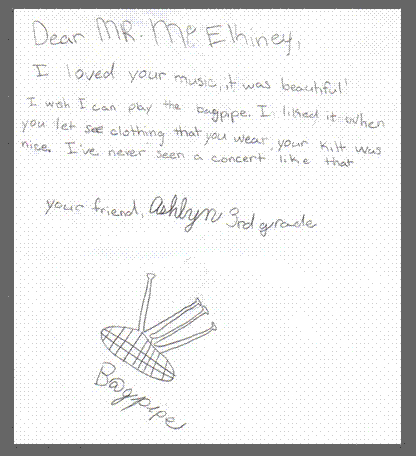 Dear MR. McElhiney,
I loved your music, it was beautiful!
I wish I can play the bagpipe. I liked it when
you let see clothing that you wear, your kilt was
nice. I've never seen a concert like that
your friend, Ashlyn 3rd grade
Bagpipe